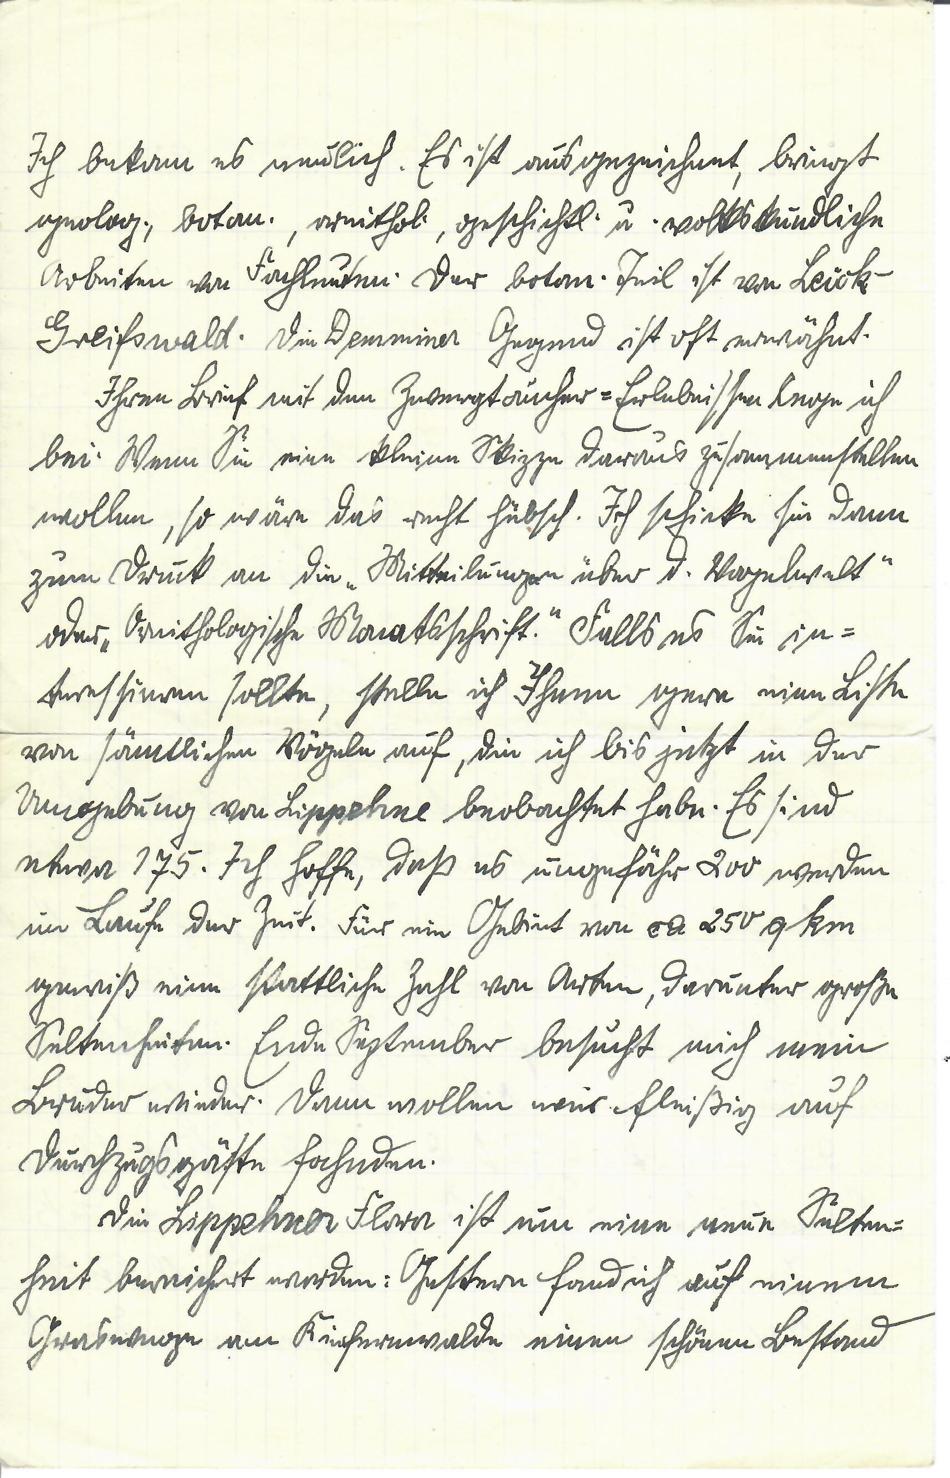 Ich bekam es neulich. Es ist ausgezeichnet, bringt
geolog., botan., ornithol., geschichtl. u. volkskundliche
Arbeiten von Fachleuten. Der botan. Teil ist von Leick-
Greifswald. Die Demminer Gegend ist oft erwähnt.
Ihren Brief mit den Zwergtaucher=Erlebnissen lege ich
bei. Wenn Sie eine kleine Skizze daraus zusammenstellen
wollen, so wäre das recht hübsch. Ich schicke sie dann
zum Druck an die „Mitteilungen über d. Vogelwelt"
oder „Ornithologische Monatsschrift." Falls es Sie in=
teressieren sollte, stelle ich Ihnen gern eine Liste
von sämtlichen Vögeln auf, die ich bis jetzt in der
Umgebung von Lippehne beobachtet habe. Es sind
etwa 175. Ich hoffe, daß es ungefähr 200 werden
im Laufe der Zeit. Für ein Gebiet von ca 250 qkm
gewiß eine stattliche Zahl von Arten, darunter große
Seltenheiten. Ende September besucht mich mein
Bruder wieder. Dann wollen wir fleißig auf
Durchzugsgäste fahnden.
Die Lippehner Flora ist um eine neue Selten=
heit bereichert worden: Gestern fand ich auf einem
Graswege am Kiefernwalde einen schönen Bestand